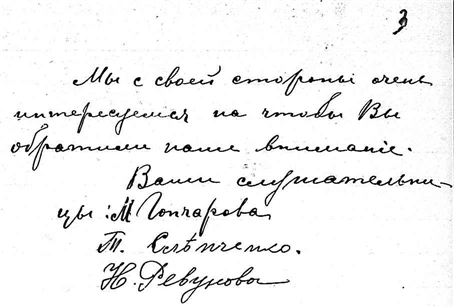 3
Мы с своей стороны очень
интересуемся на чтобы Вы
обратили наше вниманіе.
Ваши слушательни-
цы: М Гончарова
Т. Слѣпченко.
Н. Ревунова